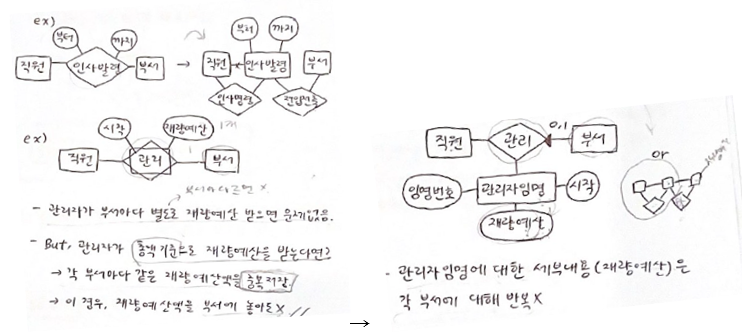 ex)
부터
까지
직원
인사발령
부서
→
부터
까지
직원
인사발령
부서
인사명령
전입전출
ex)
시작
재량예산
1개
직원
관리
1
부서
- 관리자가 부서마다 별도로 재량예산 받으면 문제없음.
- But, 관리자가 총액기준으로 재량예산을 받는다면?
→ 각 부서마다 같은 재량예산액을 중복저장.
→ 이 경우, 재량예산액을 부서에 놓아도 X
→
직원
관리
0,1
부서
or
임명번호
관리자임명
시작
재량예산
- 관리자임명에 대한 세부내용(재량예산)은
각 부서에 대해 반복X